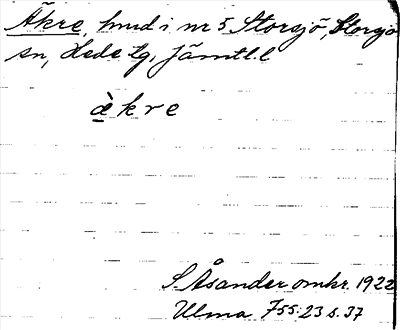 Åkre, hmd i nr 5 Storsjö, Storsjö
sn, Hede tg, Jämtl. l
àkre
S. Åsander omkr. 1922
Ulma F55:23 s. 37